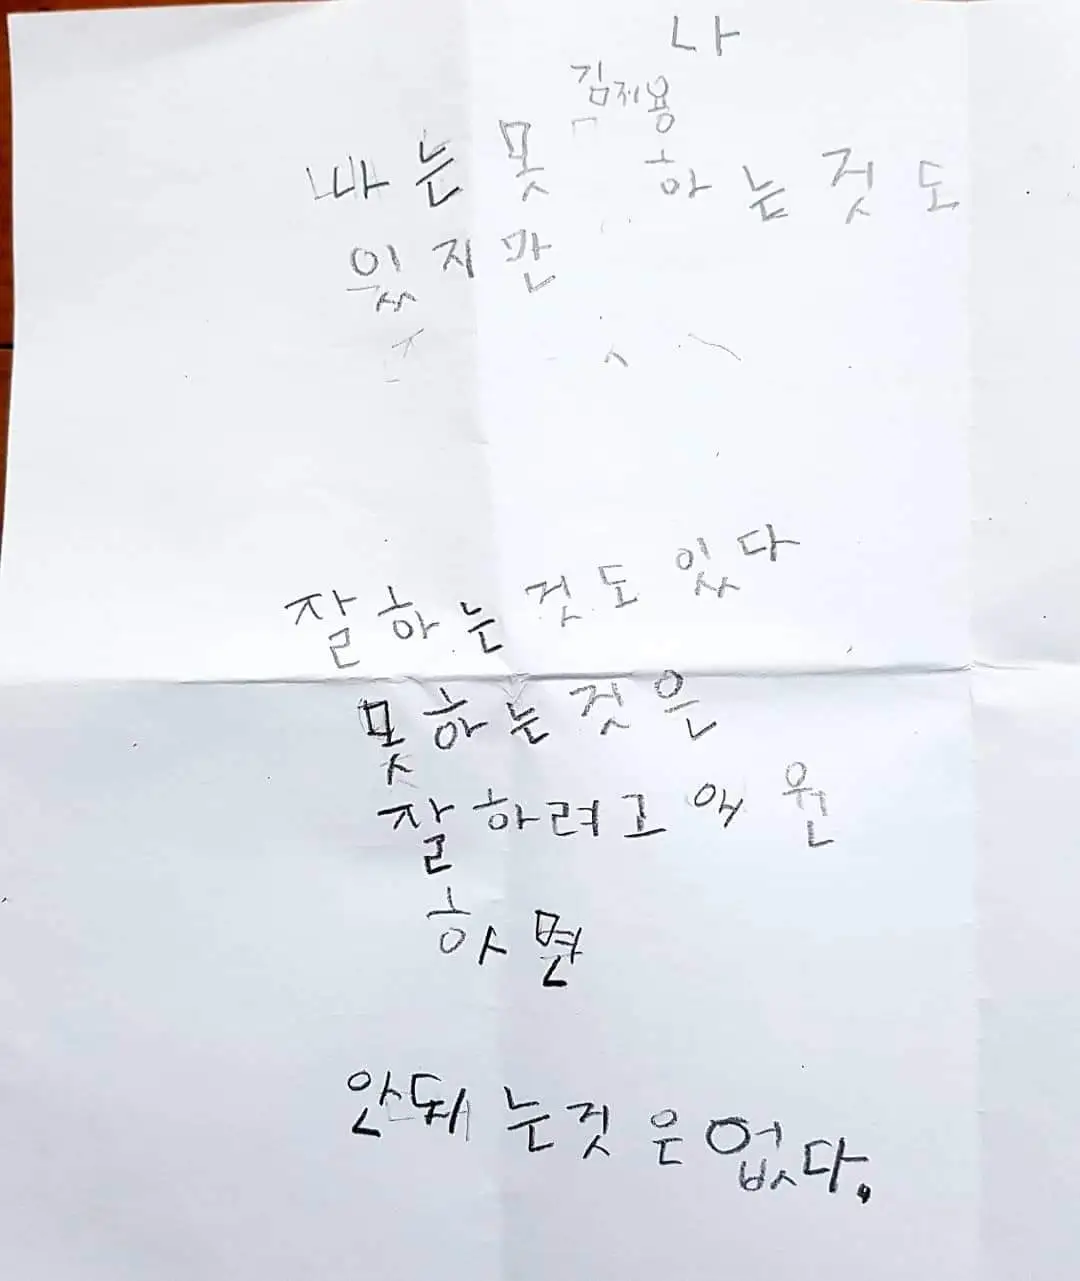 나
김제용
나는 못 하는 것도
있지만
잘하는 것도 있다
못하는 것은
잘하려고 애 원
하면
안돼는것은없다.